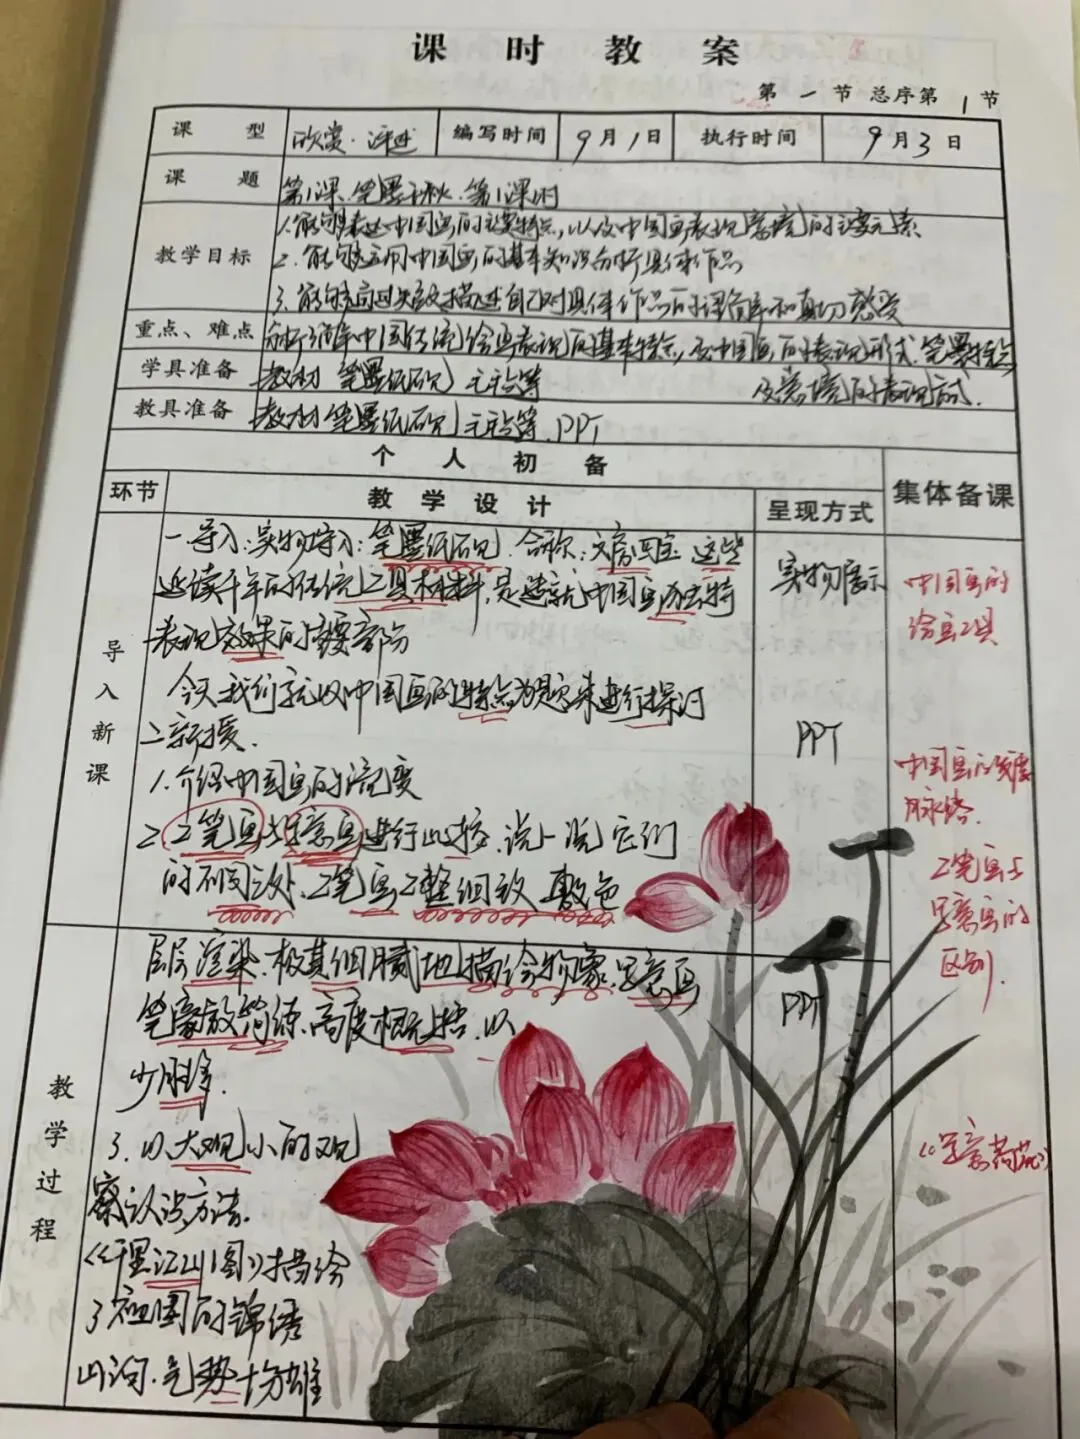 课时教案
第一节 总序第1节
课型 欣赏·评述 编写时间 9月1日 执行时间 9月3日
课题 第1课·笔墨千秋·第1课时
教学目标 1.能够表述中国画的主要特点,以及中国画表现意境的主要元素
2.能够运用中国画的基本知识分析具体作品
3.能够通过 描述自己对具体作品的理解和真切感受
重点、难点 分析 中国传统绘画表现的基本特点,及中国画的表现形式:笔墨特点
及意境的表现方式.
学具准备 教材 笔墨纸砚 等
教具准备 教材 笔墨纸砚 等、PPT
个人初备
集体备课
环节 教学设计 呈现方式
导入新课
一.导入:实物导入:笔墨纸砚.合称:文房四宝 这些
延续千年的传统工具材料,是造就中国画独特
表现效果的重要部分
今天我们就以中国画的特点为题来进行探讨
二.新授.
1.介绍中国画的流变
2.工笔画与写意画进行比较.说一说它们
的不同之处.工笔画工整细致 敷色
实物展示
PPT
中国画的
绘画工具
中国画的发展
脉络.
工笔画与
写意画的
区别.
教学过程
层层渲染.极其细腻地描绘物象.写意画
笔豪放简练.高度概括.以
少胜多.
3.以大观小的观
察认识方法.
《千里江山图》描绘
了祖国的锦绣
山河.气势十分雄
PPT
《写意荷花》